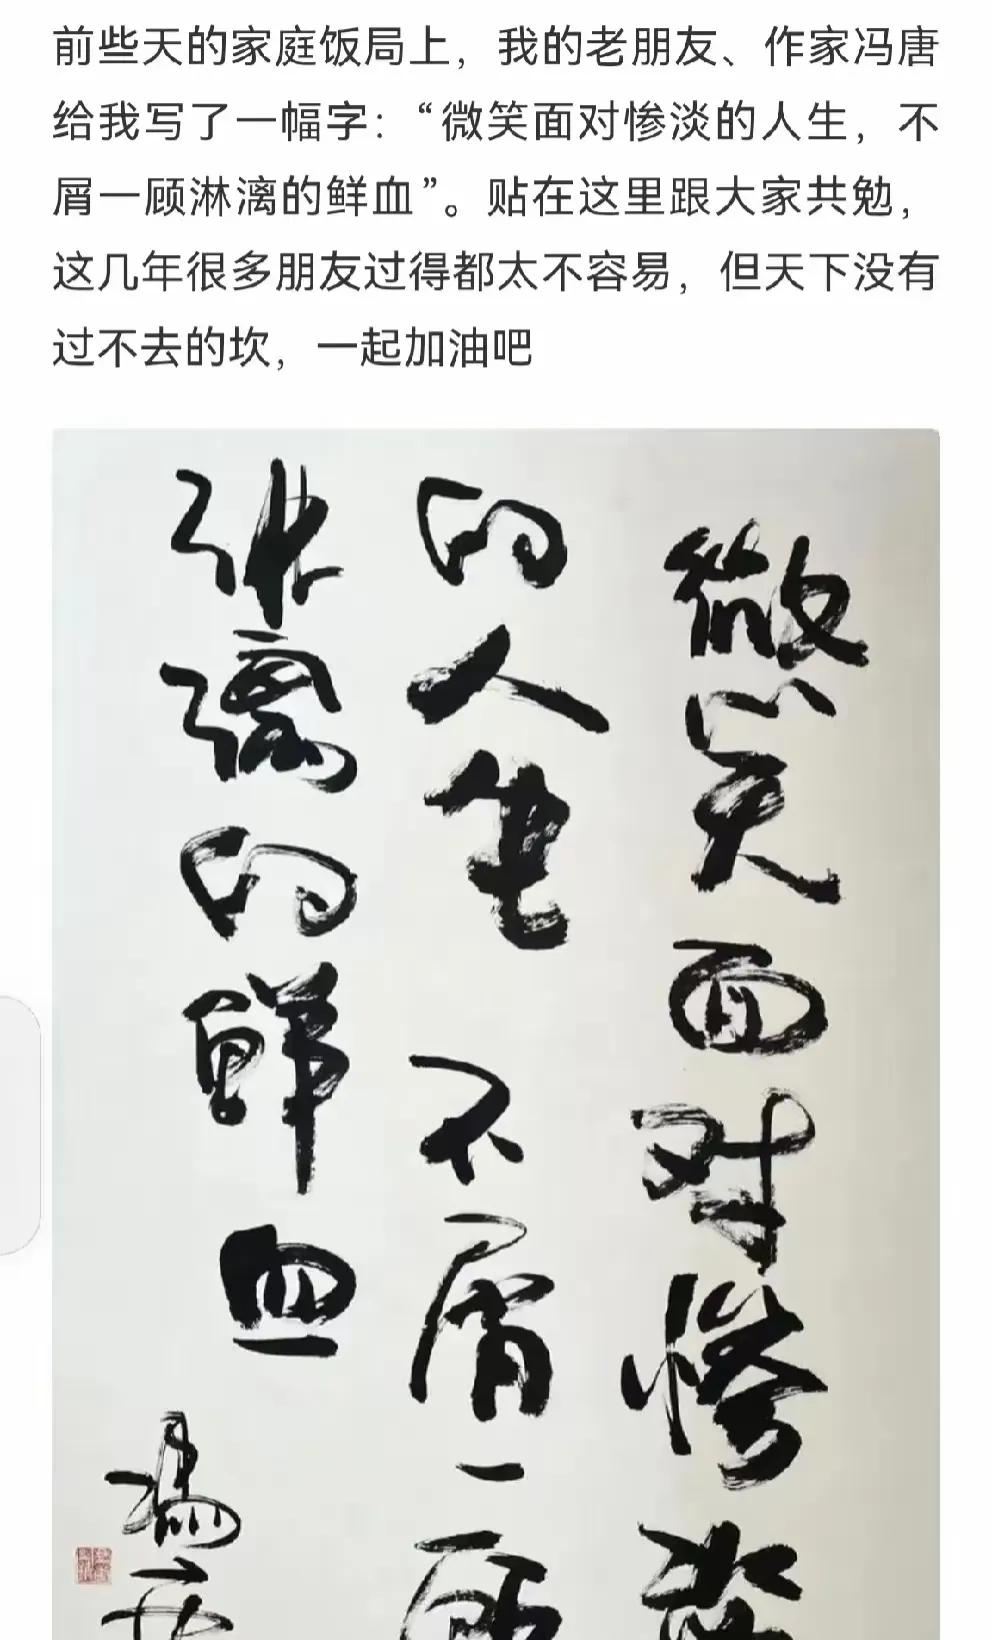 前些天的家庭饭局上，我的老朋友、作家冯唐
给我写了一幅字：“微笑面对惨淡的人生，不
屑一顾淋漓的鲜血”。贴在这里跟大家共勉，
这几年很多朋友过得都太不容易，但天下没有
过不去的坎，一起加油吧
微笑面对惨淡
的人生 不屑一顾
淋漓的鲜血
冯唐